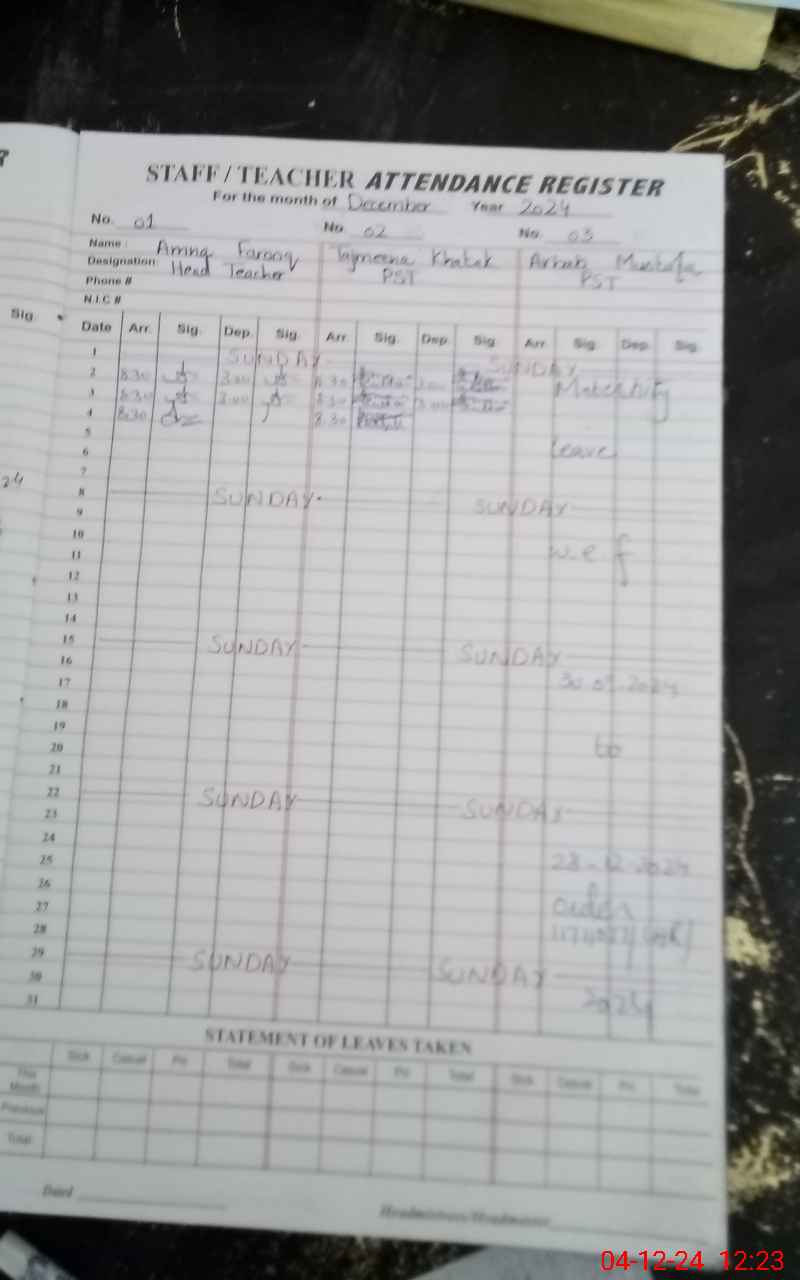 STAFF / TEACHER ATTENDANCE REGISTER
For the month of December Year 2024
No. 01 No. 02 No. 03
Name : Amna Farooq Tajmeena Khatak Mustafa
Designation: Head Teacher PST PST
Phone #
N.I.C #
Sig.
Date Arr. Sig. Dep. Sig. Arr. Sig. Dep. Sig. Arr. Sig. Dep. Sig.
1 SUNDAY SUNDAY
2 8:30 3:00 8:30 3:00 Maternity
3 8:30 3:00 8:30 3:00
4 8:30 8:30
5
6 leave
7
24
8 SUNDAY SUNDAY
9
10
11 w.e.f
12
13
14
15 SUNDAY SUNDAY
16
17
18
19
20 to
21
22 SUNDAY SUNDAY
23
24
25 28-12-2024
26
27 Order
28
29 SUNDAY SUNDAY
30 2024
31
STATEMENT OF LEAVES TAKEN
Sick Casual Pri. Total Sick Casual Pri. Total Sick Casual Pri. Total
This Month
Previous
Total
Dated
Headmistress/Headmaster
04-12-24 12:23